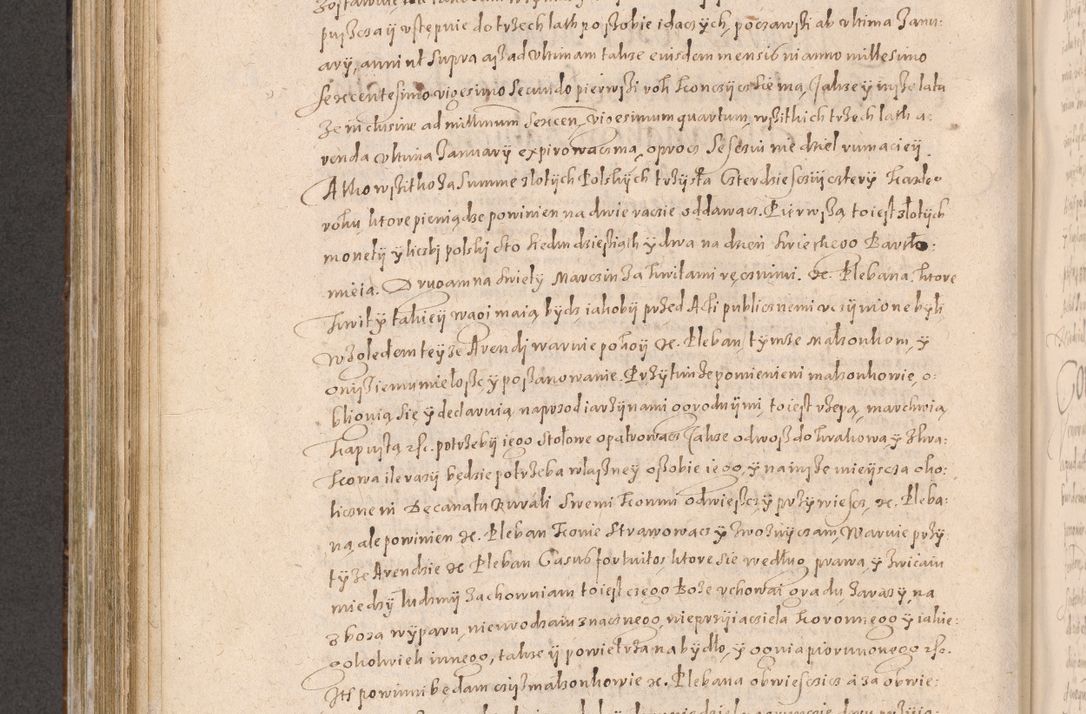 puszcza ij vstępuie do trzech lath po sobie idaczych, począwszi ab vltima Janu:
arij, anni ut supra aż ad vltimam takze eiusdem mensis in anno millesimo
sexcentesimo vigesimo secundo pierwszi roh konczijcz sie ma, Jakze ÿ insze lata
ze inclusiue ad millmum sexcen, vigesimum quartum, wszitkich trzech lath a:
renda vltima Januarij expirowacz ma, oprocz sesciu niedziel rumaciej
A tho wszitko za summe zlotÿch Polskÿch trzÿsta czterdziesci ij czterÿ kazde°
roku, ktore pieniądze powinien na dwie racie oddawacz. Pierwszą to iest zlotÿch
monetÿ ÿ liczbÿ polskÿ sto siedmdziesiąth ÿ dwa na dzień swietego Bartło:
mieia. Drugą na swiety Marczin za kwitami ręcznimi. xe. Plebana, ktore
kwitÿ takieij wagi maią bÿdz iakobij przed Acti publicznemi uczijnione bÿli
Wzgledem tejze Arendj waruie pokoij xe. Pleban, tÿmze małzonkom, ÿ
onÿsz iemu miełoscz ÿ poszanowanie. Przÿtim ze pomienieni małzonkowie, o:
bliguią się ÿ declaruią, naprzod iarzÿnami ogrodnijmi, to iest rzepą, marchwią
kapustą etc. potrzebÿ iego stołowe opatrowacz Jakze odwoz do krakowa, ÿ z kra:
kowa ile razij będzie potrzeba własznej osobie iego, ÿ na insze mieijscza oko:
liczne in Decanatu Rurali swemi konmi odwieszcz ÿ przÿwieszcz, xe. Pleba:
na, ale powinien xe. Pleban konie strawowacz ÿ z woznijczam, Waruie przÿ
tÿ ze Arendzie xe Pleban Casus fortuitos ktore sie według, prawa, ÿ zwiczaiu
miedzÿ ludzmij zachowuiam to iest czego Boze vchowai gradu, zarazÿ, na
zboza wÿparu, niewrodzaiu znacznego, nieprzÿiaciela koronnego ÿ iakie:
gokolwiek innego, takze ij powietrza na bÿdło, ÿ ognia piorunonego etc.
Jts powinni będam cziż małzonkowie xe. Plebana obwiesczicz a za obwie: